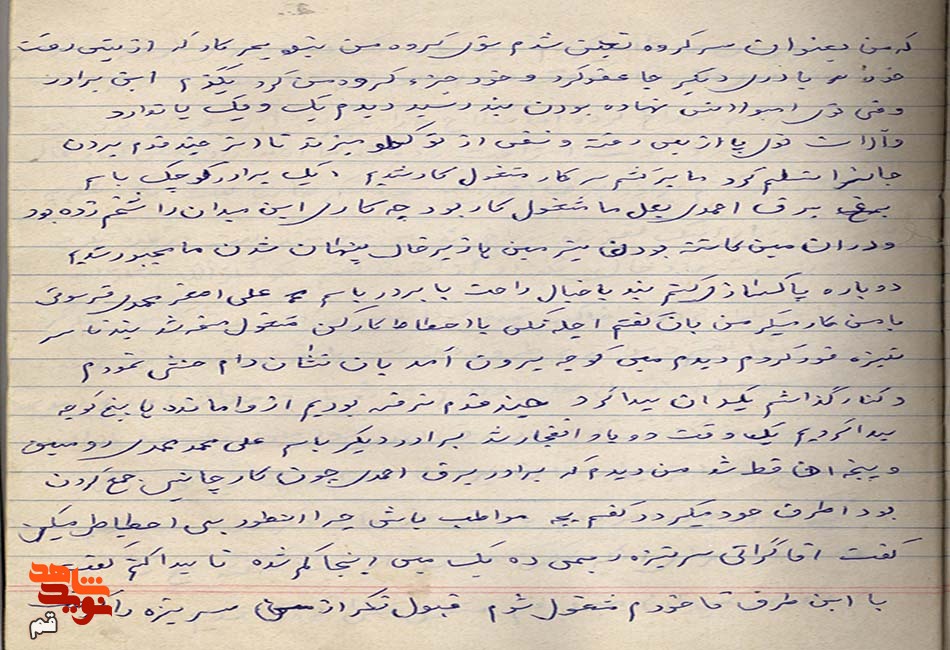 که من بعنوان سرگروه تعلین شدم توی گروه من بنو بحر کار که از پیش رفت
خون یا ذری دیگر جا عفو کرد و خود جزء گرو دمن کرد بگذم این برادر
وقتی توی امبولانس نهاده بودن بند رسید دیدم یک و یک پا ندارد
پا از بس رفته و نفس از تو گلو میزند تا چند قدم بردن
جانرا تسلم کرد ما برگشتم سر کار مشغول کار شدیم یک برادر کوچک باسم
برق احمدی بغل ما مشغول کار بود چه کاری این میدان را شخم زده بود
و در ان مین کاشته بودن بیتر مین ها زیر خاک پنهان شدن ما مجبور شدیم
دوباره پاکسازی کنیم بند با خیال راحت با بردر باسم علی اصغر محمدی
با من کار میکر من بان گفتم با احطاط کار کن مشغول شد بند تا سر
نیزه فور کردم دیدم مین گوجه بیرون آمد بان نشان دام خنثی نمودم
و کنار گذاشتم یک ان پیدا کرد چند قدم نرفته بودیم از واماندد یا پنج گوجه
پیدا کردیم یک وقت دو باد انفجار شد برادر دیکر باسم علی محمد محمدی رو مین
و پنجه اش قط شد من دیدم که برادر برق احمدی چون کار چاشنی جمع کردن
بود اطرف خود میکرد گفتم بچه مواظب باش چرا اینطور بی احطیاطی میکنی
گفت اقا گراتی سر نیزه رسمی ده یک مین اینجا کم شده تا پیدا کنم گفت
با این طرف تا خودم مشغول شوم قبول نکر از سر نیزه را
شاهد
نوید
قم